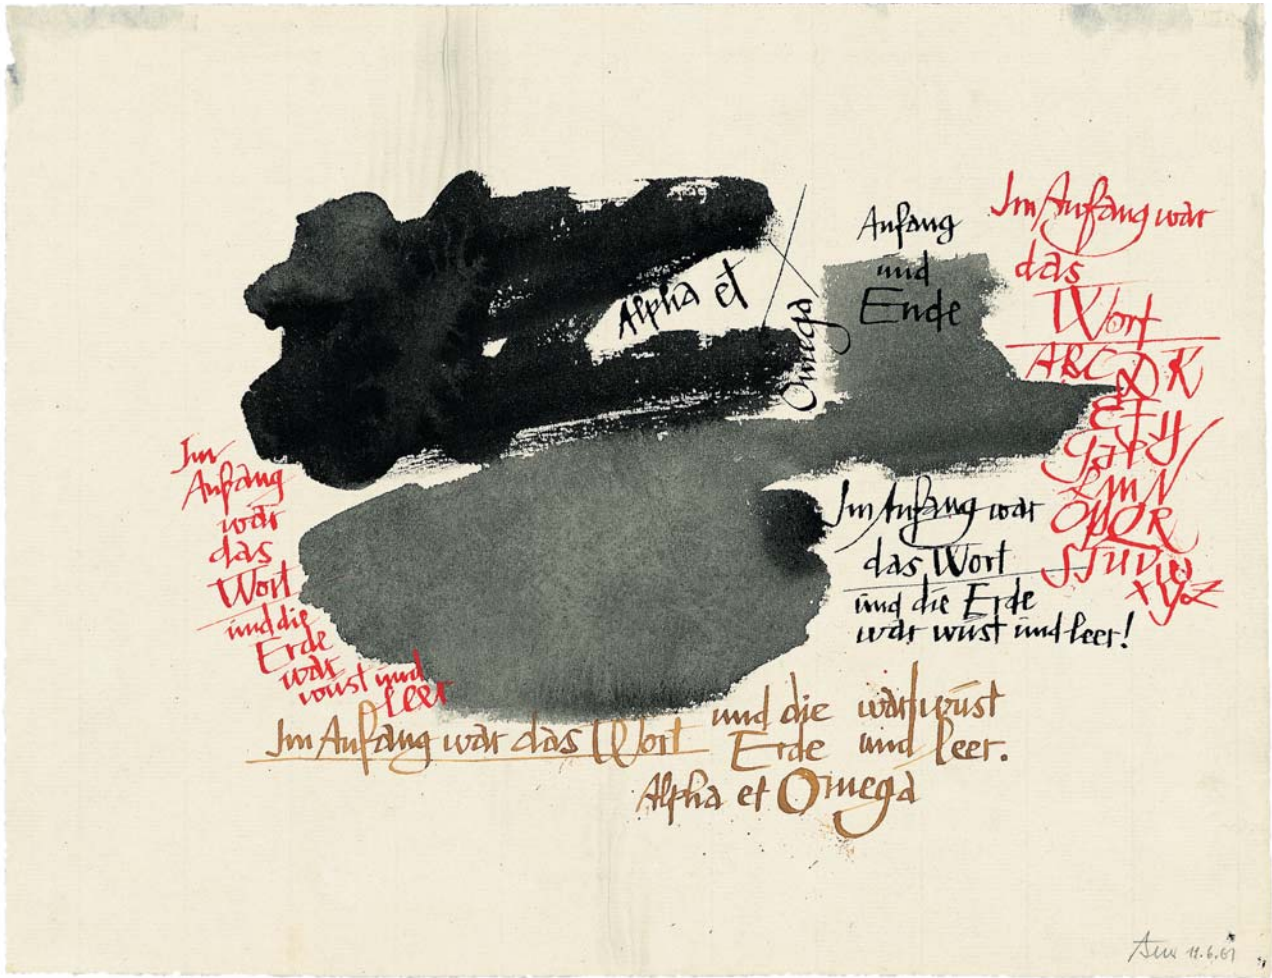 Alpha et
Omega
Anfang
und
Ende
Im Anfang war
das
Wort
ABCDK
EF
LMN
OPQR
STUVW
XYZ
Im
Anfang
war
das
Wort
und die
Erde
war
wüst und
leer
Im Anfang war
das Wort
und die Erde
war wüst und leer!
Im Anfang war das Wort
und die war wüst
Erde und leer.
Alpha et Omega